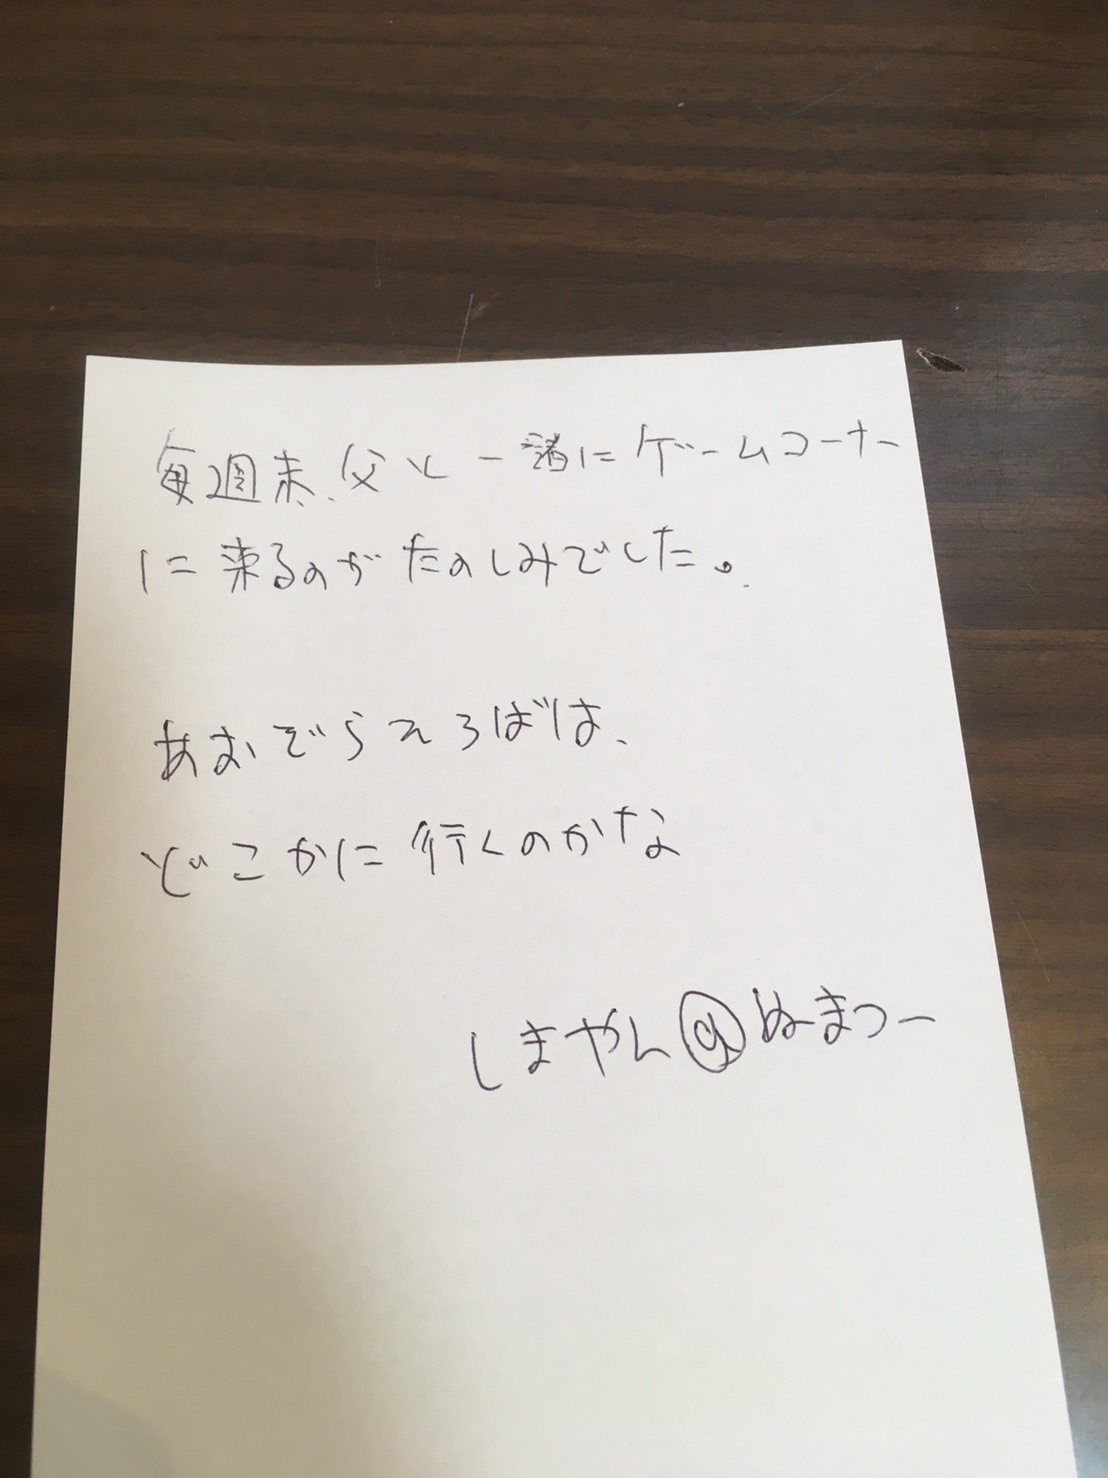 毎週末、父と一緒にゲームコーナー
に来るのがたのしみでした。
あおぞらえろばは、
どこかに行くのかな
しまやん@ぬまつー